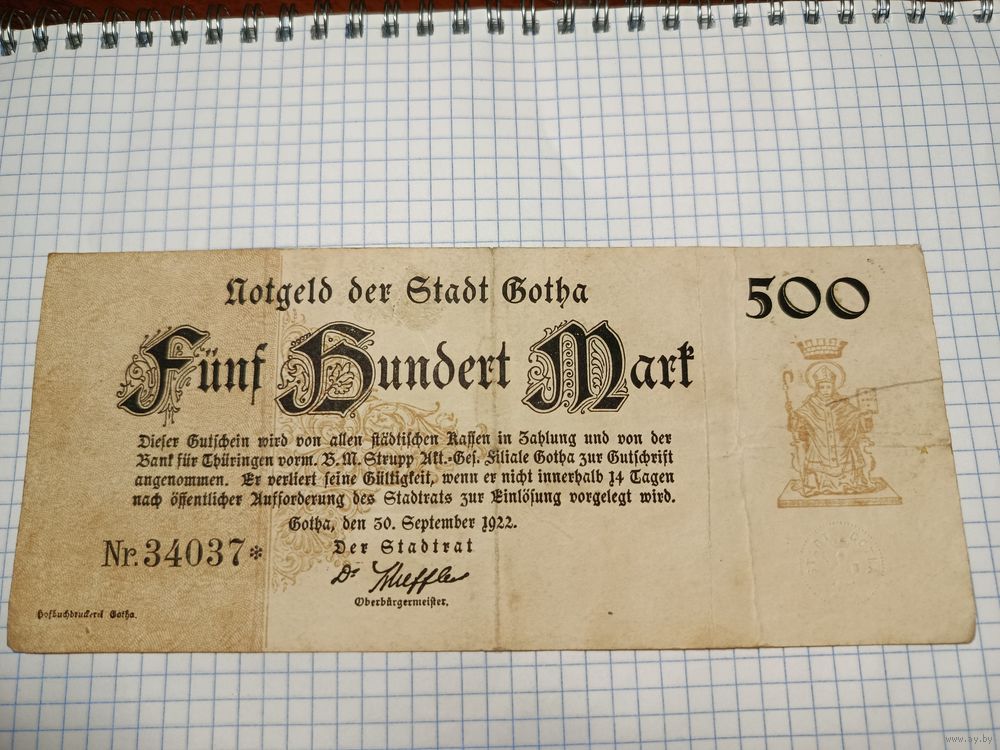 Notgeld der Stadt Gotha
500
Fünf Hundert Mark
Dieser Gutschein wird von allen städtischen Kassen in Zahlung und von der
Bank für Thüringen vorm. B. M. Strupp Akt.-Ges. Filiale Gotha zur Gutschrift
angenommen. Er verliert seine Gültigkeit, wenn er nicht innerhalb 14 Tagen
nach öffentlicher Aufforderung des Stadtrats zur Einlösung vorgelegt wird.
Gotha, den 30. September 1922.
Nr. 34037*
Der Stadtrat
Dr Scheffler
Oberbürgermeister.
Hofbuchdruckerei Gotha.
www.ay.by